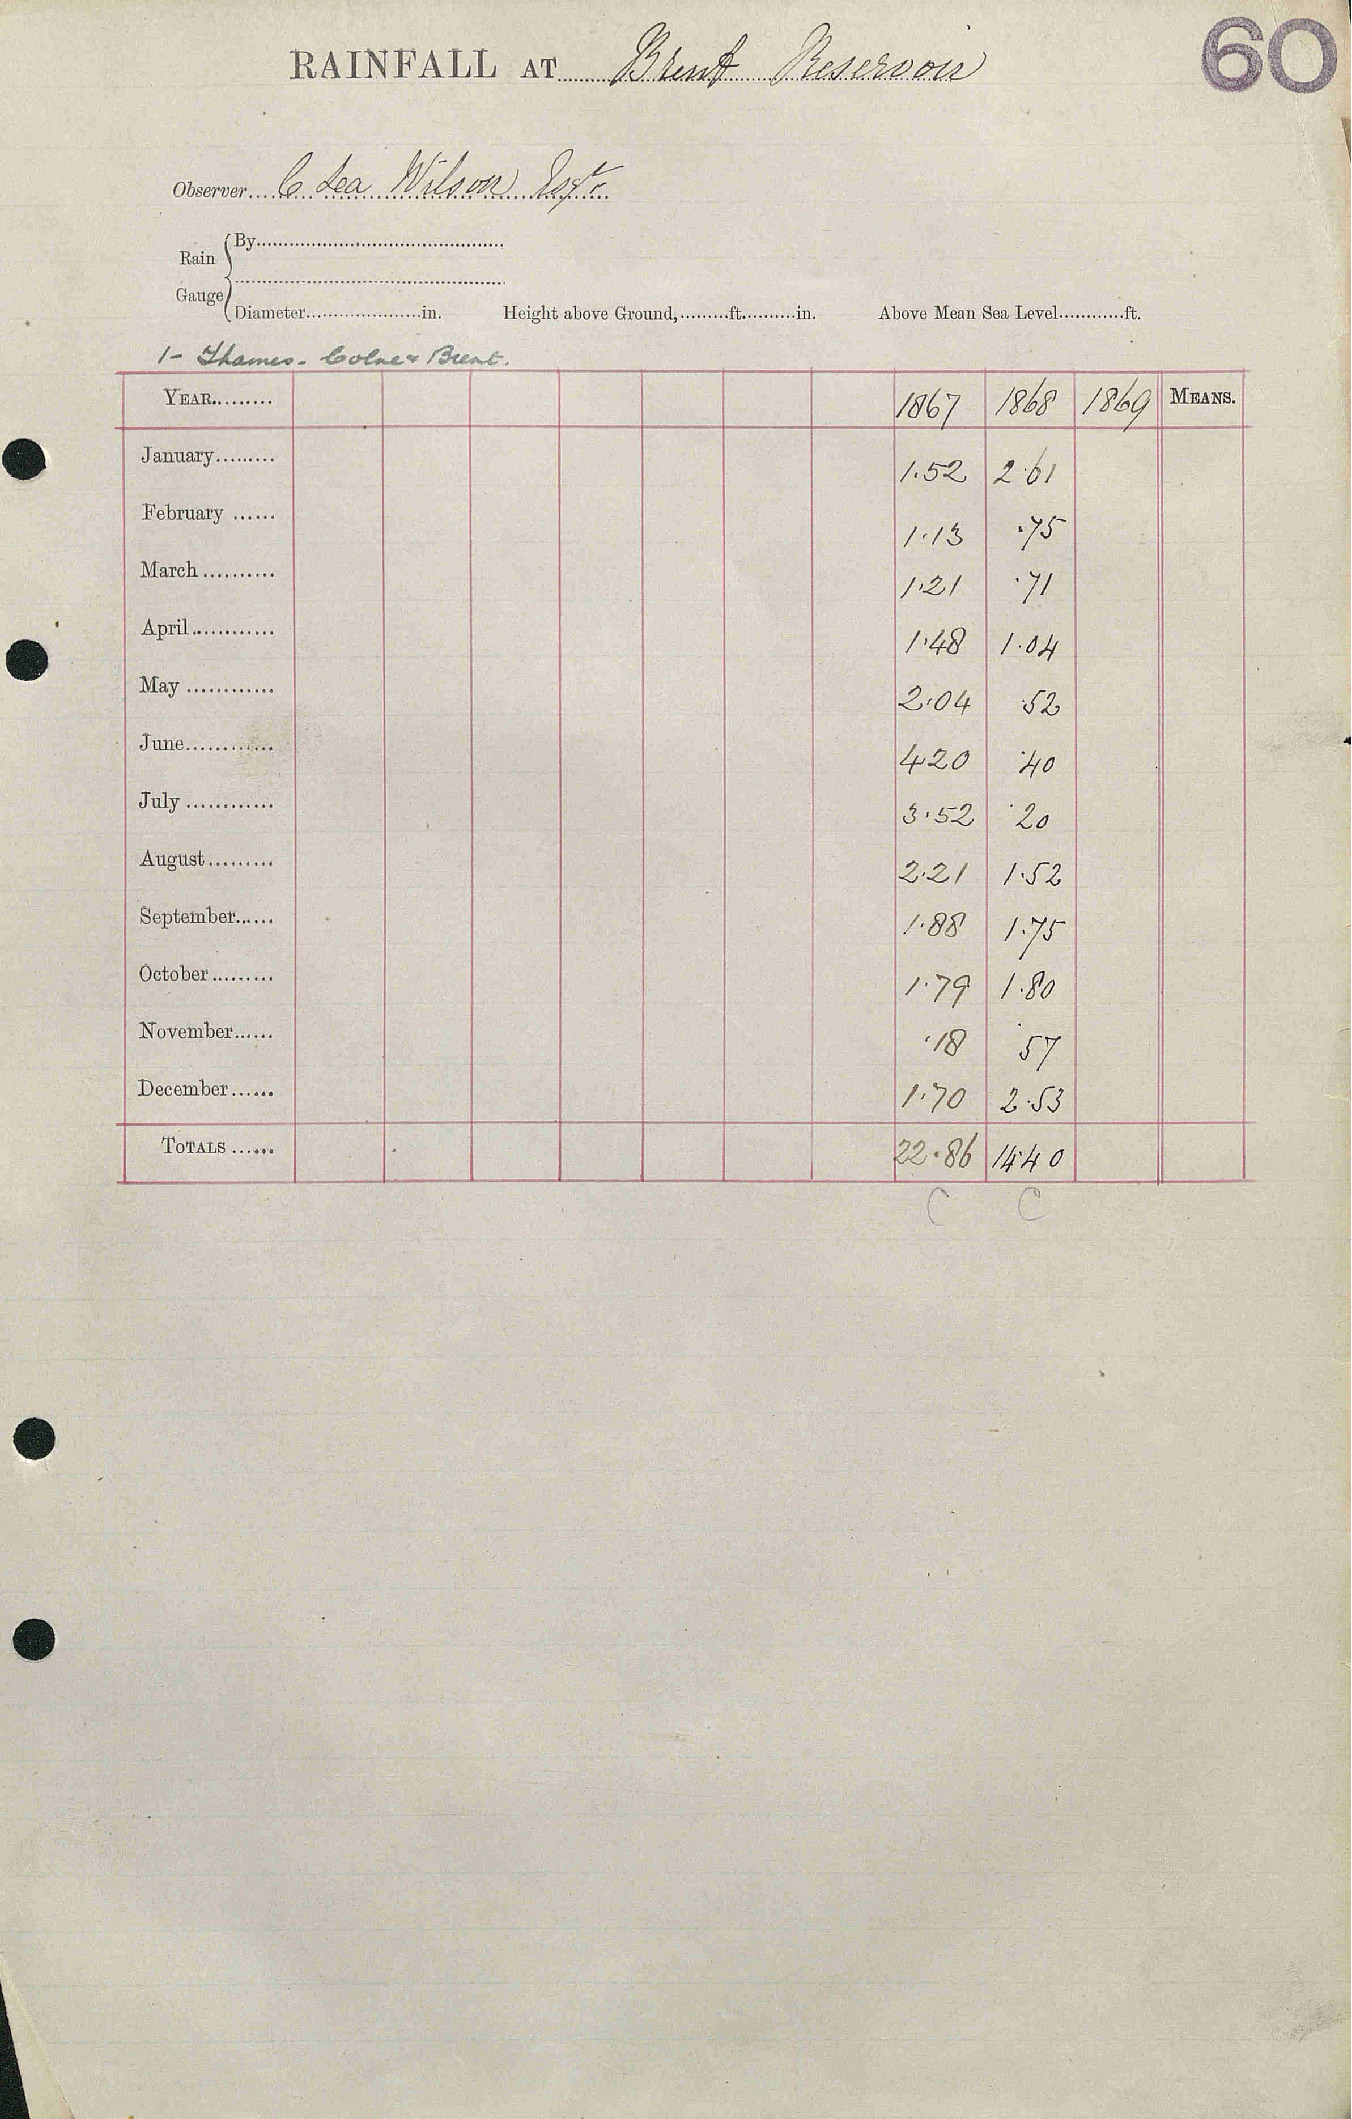 60
RAINFALL AT Brent Reservoir
Observer C Lea Wilson Esqr.
Rain Gauge
By
Diameter in. Height above Ground, ft. in. Above Mean Sea Level ft.
1- Thames - Colne & Brent.
YEAR 1867 1868 1869 MEANS.
January 1.52 2.61
February 1.13 .75
March 1.21 .71
April 1.48 1.04
May 2.04 .52
June 4.20 .40
July 3.52 .20
August 2.21 1.52
September 1.88 1.75
October 1.79 1.80
November .18 .57
December 1.70 2.53
TOTALS 22.86 14.40
C C